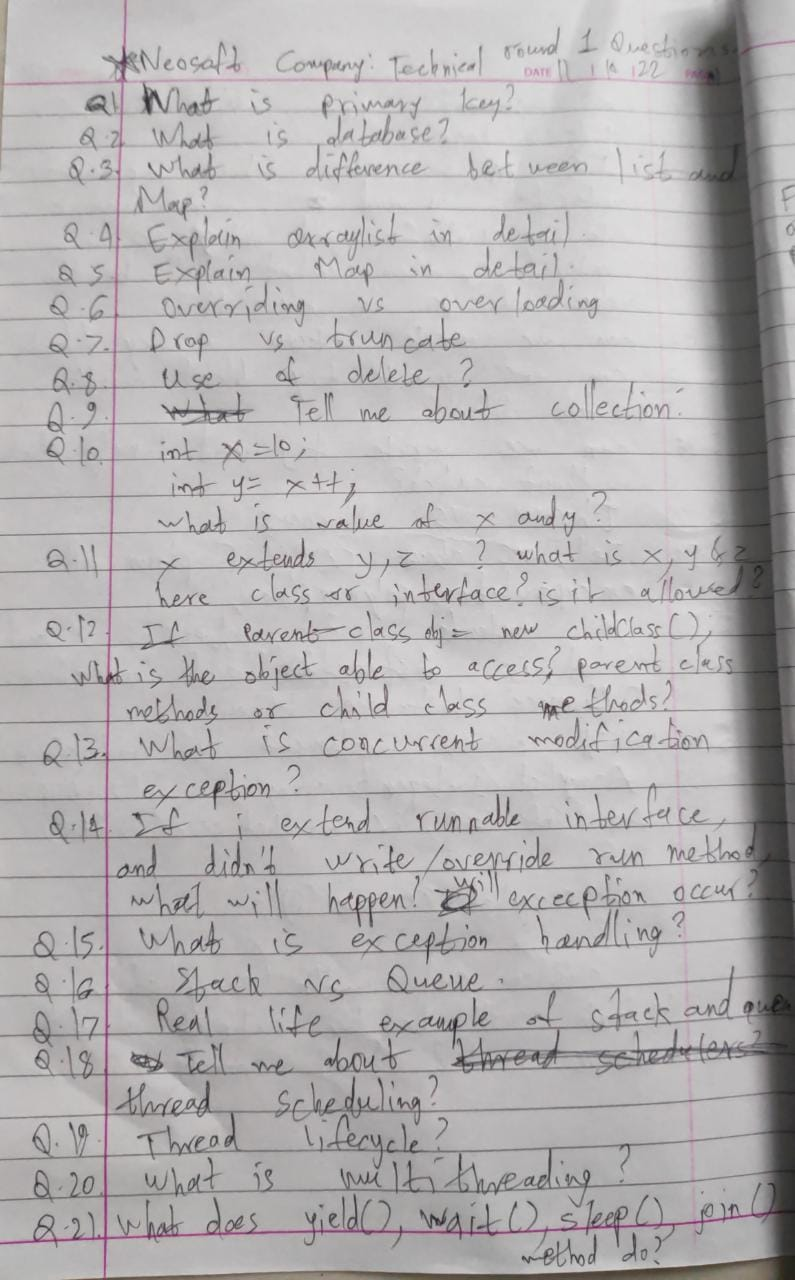 Neosoft Company: Technical round 1 Questions
DATE 22
Q1 What is primary key?
Q.2 What is database?
Q.3. What is difference between list and
Map?
Q.4 Explain arraylist in detail.
Q.5 Explain Map in detail.
Q.6 Overriding vs overloading
Q.7. Drop vs truncate
Q.8. Use of delete?
Q.9. What Tell me about collection.
Q.10. int x=10;
int y= x++;
what is value of x and y?
Q.11 x extends y,z ? what is x, y & z
here class or interface? is it allowed?
Q.12 If Parent class obj = new childClass();
What is the object able to access? parent class
methods or child class methods?
Q.13. What is concurrent modification
exception?
Q.14. If i extend runnable interface,
and didn't write/override run method,
what will happen? will excecption occur?
Q.15. What is exception handling?
Q.16 Stack vs Queue.
Q.17 Real life example of stack and que
Q.18 Tell me about thread schedulers?
thread scheduling?
Q.19. Thread lifecycle?
Q.20. What is multithreading?
Q.21. What does yield(), wait(), sleep(), join()
method do?